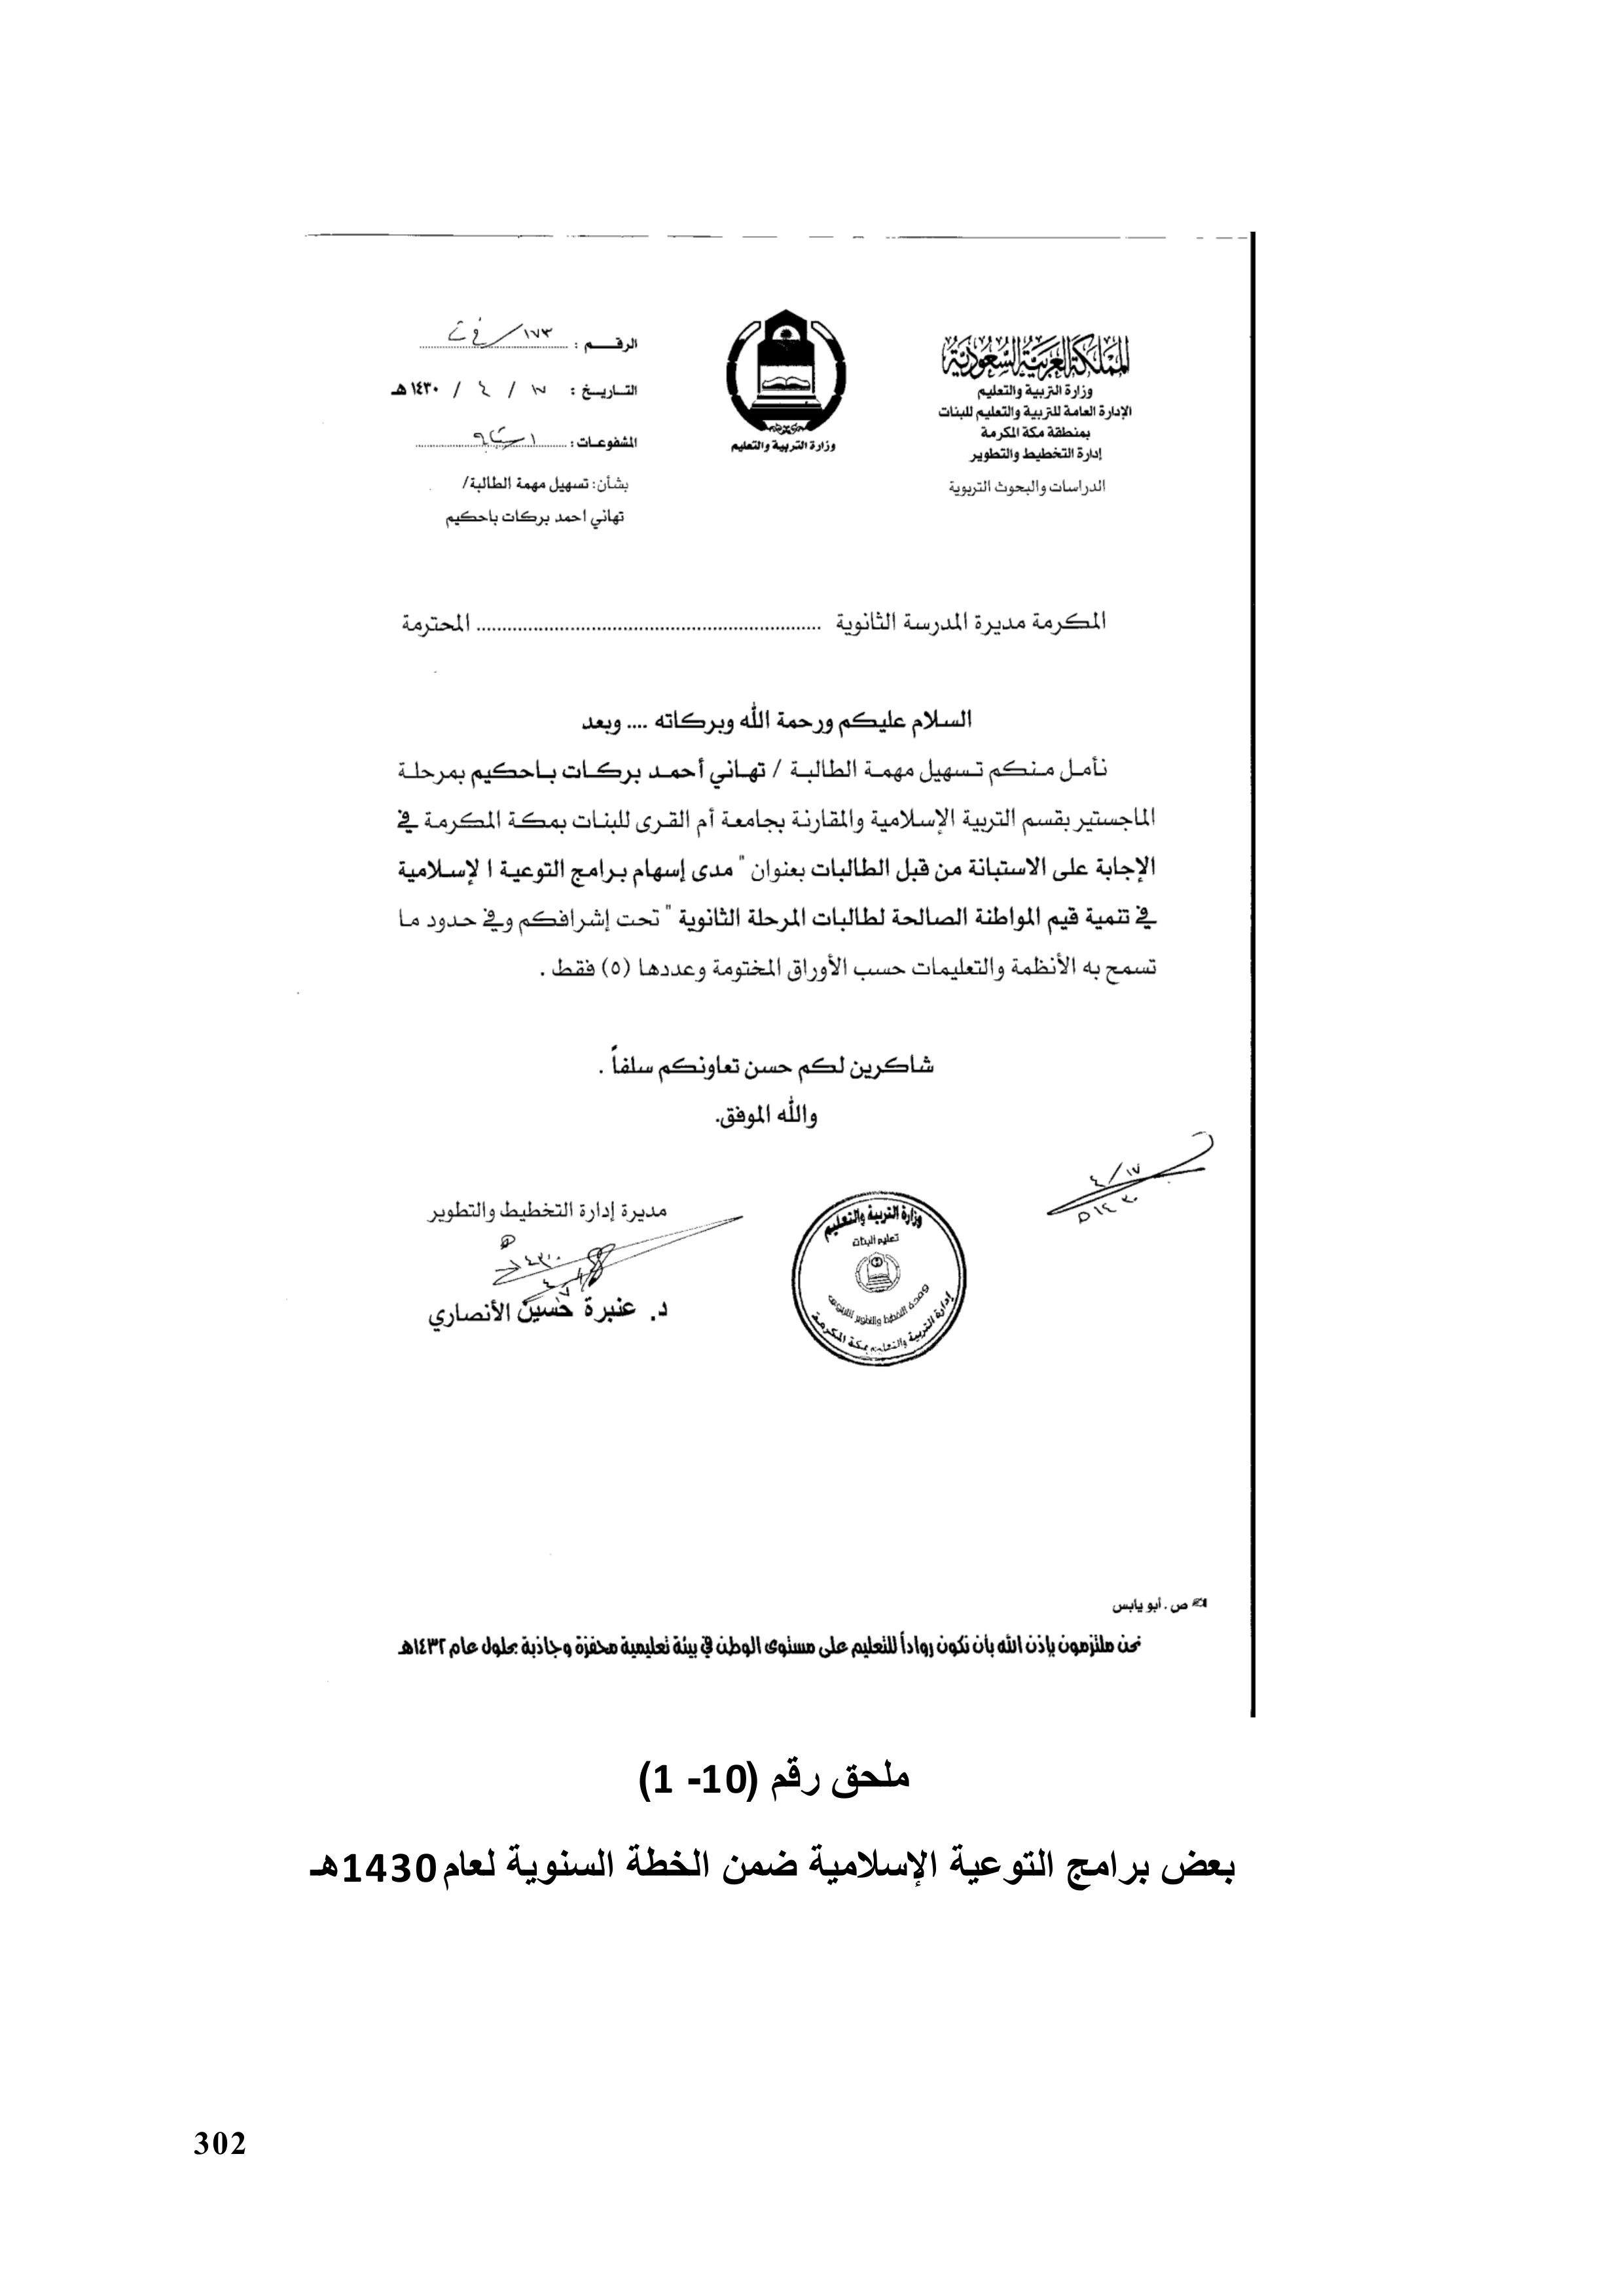 المملكة العربية السعودية
وزارة التربية والتعليم
الإدارة العامة للتربية والتعليم للبنات
بمنطقة مكة المكرمة
إدارة التخطيط والتطوير
الدراسات والبحوث التربوية
وزارة التربية والتعليم
الرقـــم : ١٧٣/
التـاريـخ : ١٧ / ٤ / ١٤٣٠هـ
المشفوعـات :
بشأن: تسهيل مهمة الطالبة/
تهاني احمد بركات باحكيم
المكرمة مديرة المدرسة الثانوية .................................................. المحترمة
السلام عليكم ورحمة الله وبركاته .... وبعد
نأمـل مـنكم تـسهيل مهمـة الطالبـة / تهـاني أحمـد بركـات بـاحكيم بمرحلـة
الماجستير بقسم التربية الإسلامية والمقارنة بجامعة أم القرى للبنات بمكة المكرمة في
الإجابة على الاستبانة من قبل الطالبات بعنوان " مدى إسهام برامج التوعية الإسلامية
في تنمية قيم المواطنة الصالحة لطالبات المرحلة الثانوية " تحت إشرافكم وفي حدود ما
تسمح به الأنظمة والتعليمات حسب الأوراق المختومة وعددها (٥) فقط .
شاكرين لكم حسن تعاونكم سلفاً .
والله الموفق.
١٧/٤
١٤٣٠هـ
مديرة إدارة التخطيط والتطوير
د. عنبرة حسين الأنصاري
وزارة التربية والتعليم
تعليم البنات
إدارة التربية والتعليم بمكة المكرمة
ص . أبو يابس
نحن ملتزمون بإذن الله بأن نكون رواداً للتعليم على مستوى الوطن في بيئة تعليمية محفزة وجاذبة بحلول عام ١٤٣٢هـ
ملحق رقم (10- 1)
بعض برامج التوعية الإسلامية ضمن الخطة السنوية لعام1430هـ
302